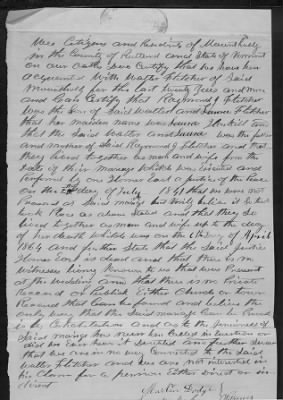 We Citizens and Residents of Mount Holly
in the County of Rutland and State of Vermont
on our oaths do Certify that we have been
acquainted With Walter Fletcher of Said
Mount Holly for the last twenty years and more
and Can Certify that Raymond J Fletcher
was the Son of Said Walter and Fletcher
that her maiden name was that
that the Said Walter and was the father
and mother of Said Raymond J Fletcher and that
they lived together as man and wife from the
date of their marriage which was
by one a justice of the Peace
on the day of July 1841 that we were not
Present at Said marriage but verily believe it to
took Place as above Stated and that they So
lived together as man and wife up to the day
of her death which was on the day of April
1864 and further State that the Said Justice
is dead and that there is no
witness living Known to us that were Present
at the wedding and that there is no Private
Record or Publick Either Church or town
Record that Can be found and believe the
only way that the Said marriage Can be Proved
is by Cohabitation and as to the Genuineness of
Said marriage has never been Called in question or
did we Ever hear it disputed and further Swear
that we are in no way Connected to the Said
Walter Fletcher and we are not interested in
his Claim for a pension Either direct or in
direct
Dodge